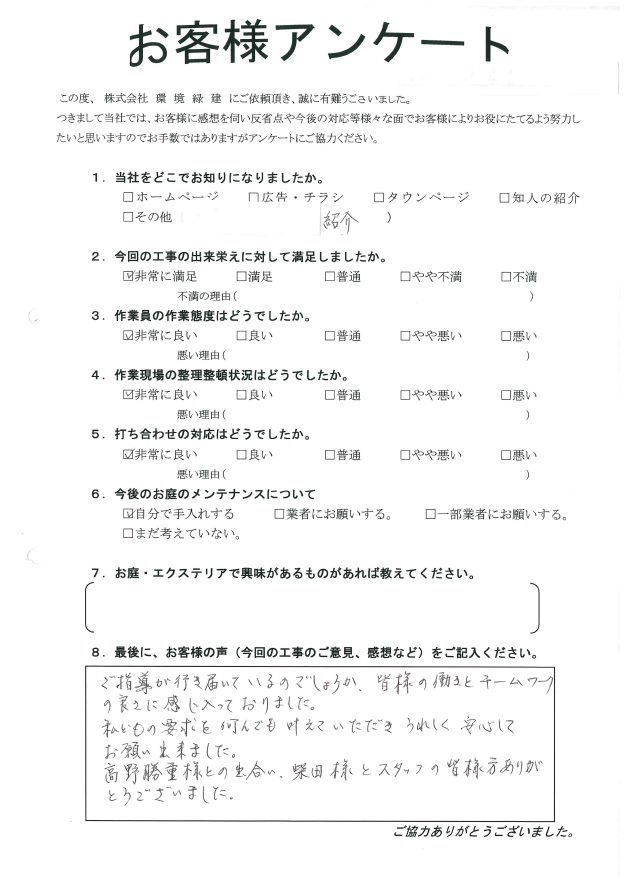 お客様アンケート
この度、 株式会社 環 境 緑 建 にご依頼頂き、誠に有難うございました。
つきまして当社では、お客様に感想を伺い反省点や今後の対応等様々な面でお客様によりお役にたてるよう努力し
たいと思いますのでお手数ではありますがアンケートにご協力ください。
1. 当社をどこでお知りになりましたか。
□ホームページ □広告・チラシ □タウンページ □知人の紹介
□その他 紹介 )
2. 今回の工事の出来栄えに対して満足しましたか。
☑非常に満足 □満足 □普通 □やや不満 □不満
不満の理由( )
3. 作業員の作業態度はどうでしたか。
☑非常に良い □良い □普通 □やや悪い □悪い
悪い理由( )
4. 作業現場の整理整頓状況はどうでしたか。
☑非常に良い □良い □普通 □やや悪い □悪い
悪い理由( )
5. 打ち合わせの対応はどうでしたか。
☑非常に良い □良い □普通 □やや悪い □悪い
悪い理由( )
6. 今後のお庭のメンテナンスについて
☑自分で手入れする □業者にお願いする。 □一部業者にお願いする。
□まだ考えていない。
7. お庭・エクステリアで興味があるものがあれば教えてください。
8. 最後に、お客様の声（今回の工事のご意見、感想など）をご記入ください。
ご指導が行き届いているのでしょうか、皆様の働きとチームワーク
の良さに感じ入っておりました。
私どもの要求を何んでも叶えていただき うれしく 安心して
お願い出来ました。
高野勝重様との出合い、柴田様とスタッフの皆様方ありが
とうございました。
ご協力ありがとうございました。